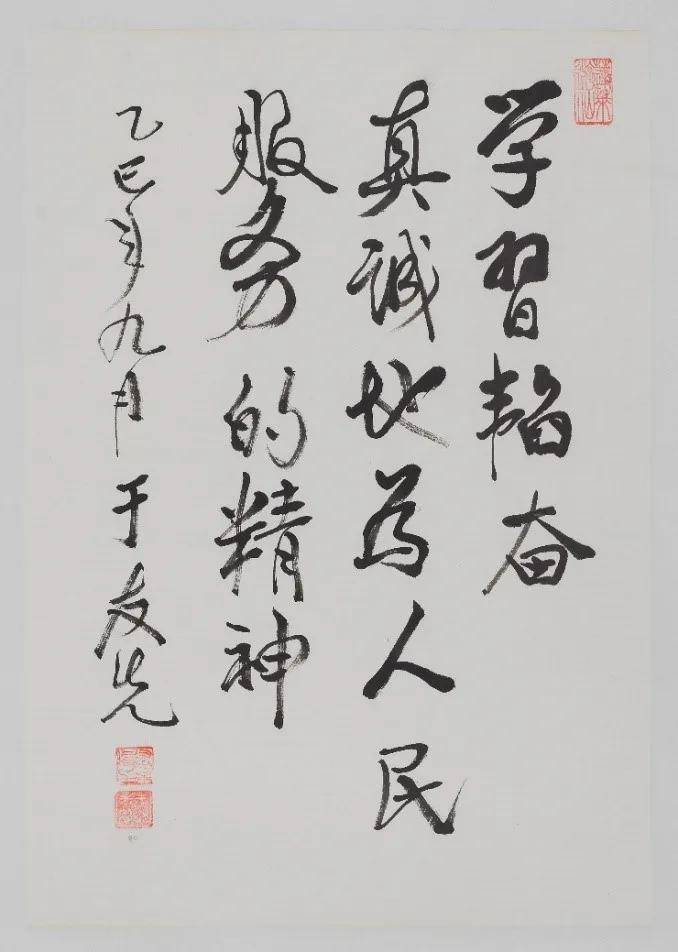 学習韬奋
真誠地为人民
服务的精神
乙巳年九月于友先